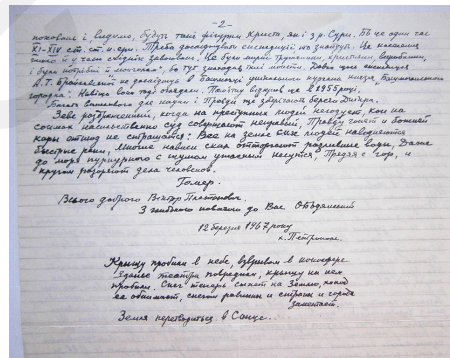 -2-
поховані і видимо, будуть такі фігурки Христа, як і з р. Сури. Бо це один час
XI-XIV ст. ст. н. ери. Треба досліджувати експедиції та знайдуть. Це населення
було й у часи свідків завойовано. Це були мирні трударі, християни, хлібороби,
і була потрібна й могила: бо тут знаходяться тілі могили. Давня ця експедиція
А.Т. Браїлевського не дослідила в Башмачці унікального кургана князя „Башмачанського
городка“. Навіщо його тоді обходили. Розкопку відкрив це в 1955 році.
Багато втаємного для науки і Правди ще зберігають береги Дніпра.
Зевс раздраженный, когда на преступных людей негодует, кои на
сонмах насильственно суд совершают неправый, Правду гонят и божией
кары отнюдь не страшатся: Все на земле сих людей наводняются
быстрые реки, Многие нависи скал отторгают разливные воды, Даже
до моря пурпурного с шумом ужасным несутся, Прядая с гор, и
кругом разоряют дела человеков.
Гомер.
Всього доброго Віктор Платонович.
З глибокою повагою до Вас
12 березня 1967 року
Крышу пробили в небе, взрывом в ионосфере
Здание театра повредили, крышу на нем
пробили. Снег теперь сыпет на Землю, холод
ее обнимает, снегом равнины и страны и города
заметает.
Земля переводиться в Солнце.